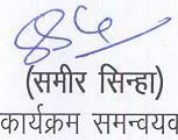 (समीर सिन्हा)
कार्यक्रम समन्वयव